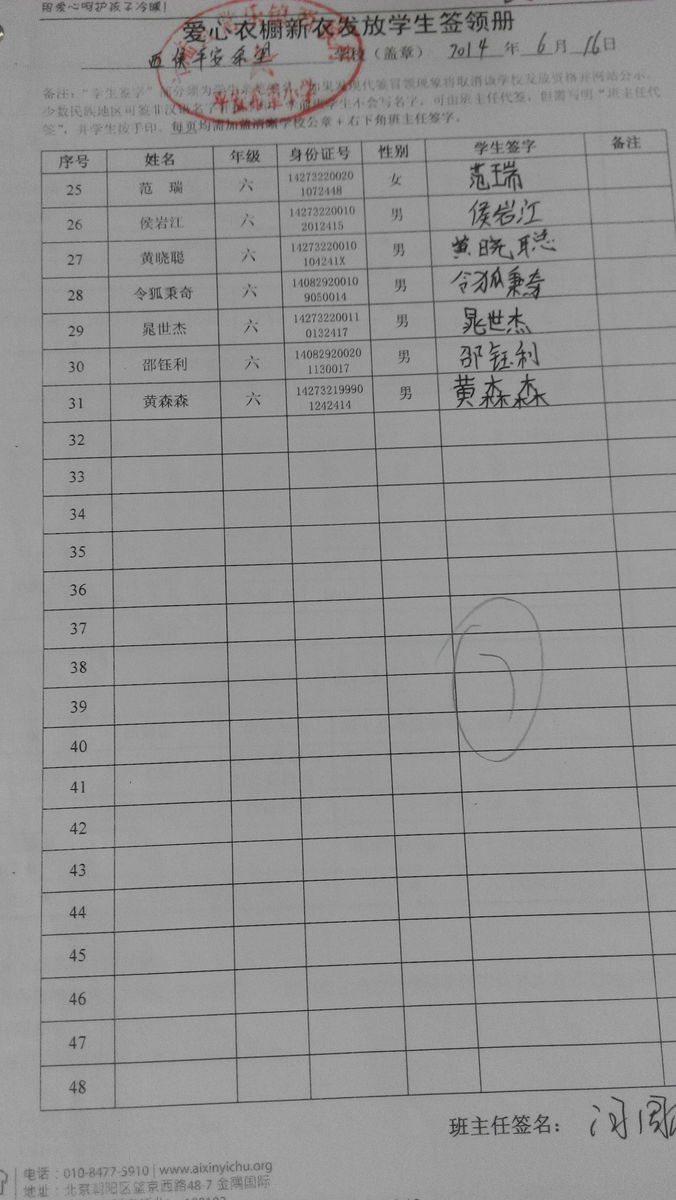 用爱心呵护孩子冷暖!
爱心衣橱新衣发放学生签领册
西侯平安希望 学校（盖章） 2014 年 6 月 16 日
平安希望小学
备注："学生签字"部分须为学生亲笔签名，如果发现代签冒领现象将取消该学校发放资格并网站公示。
少数民族地区可签非汉语名字
学生不会写名字，可由班主任代签，但需写明"班主任代
签"，并学生按手印。每页均需加盖清晰学校公章+右下角班主任签字。
序号 姓名 年级 身份证号 性别 学生签字 备注
25 范 瑞 六 14273220020 1072448 女 范瑞
26 侯岩江 六 14273220010 2012415 男 侯岩江
27 黄晓聪 六 14273220010 104241X 男 黄晓聪
28 令狐秉奇 六 14082920010 9050014 男 令狐秉奇
29 晁世杰 六 14273220011 0132417 男 晁世杰
30 邵钰利 六 14082920020 1130017 男 邵钰利
31 黄森森 六 14273219990 1242414 男 黄森森
32
33
34
35
36
37
38
39
40
41
42
43
44
45
46
47
48
班主任签名：
电话：010-8477-5910 | www.aixinyichu.org
地址：北京朝阳区望京西路48-7 金隅国际